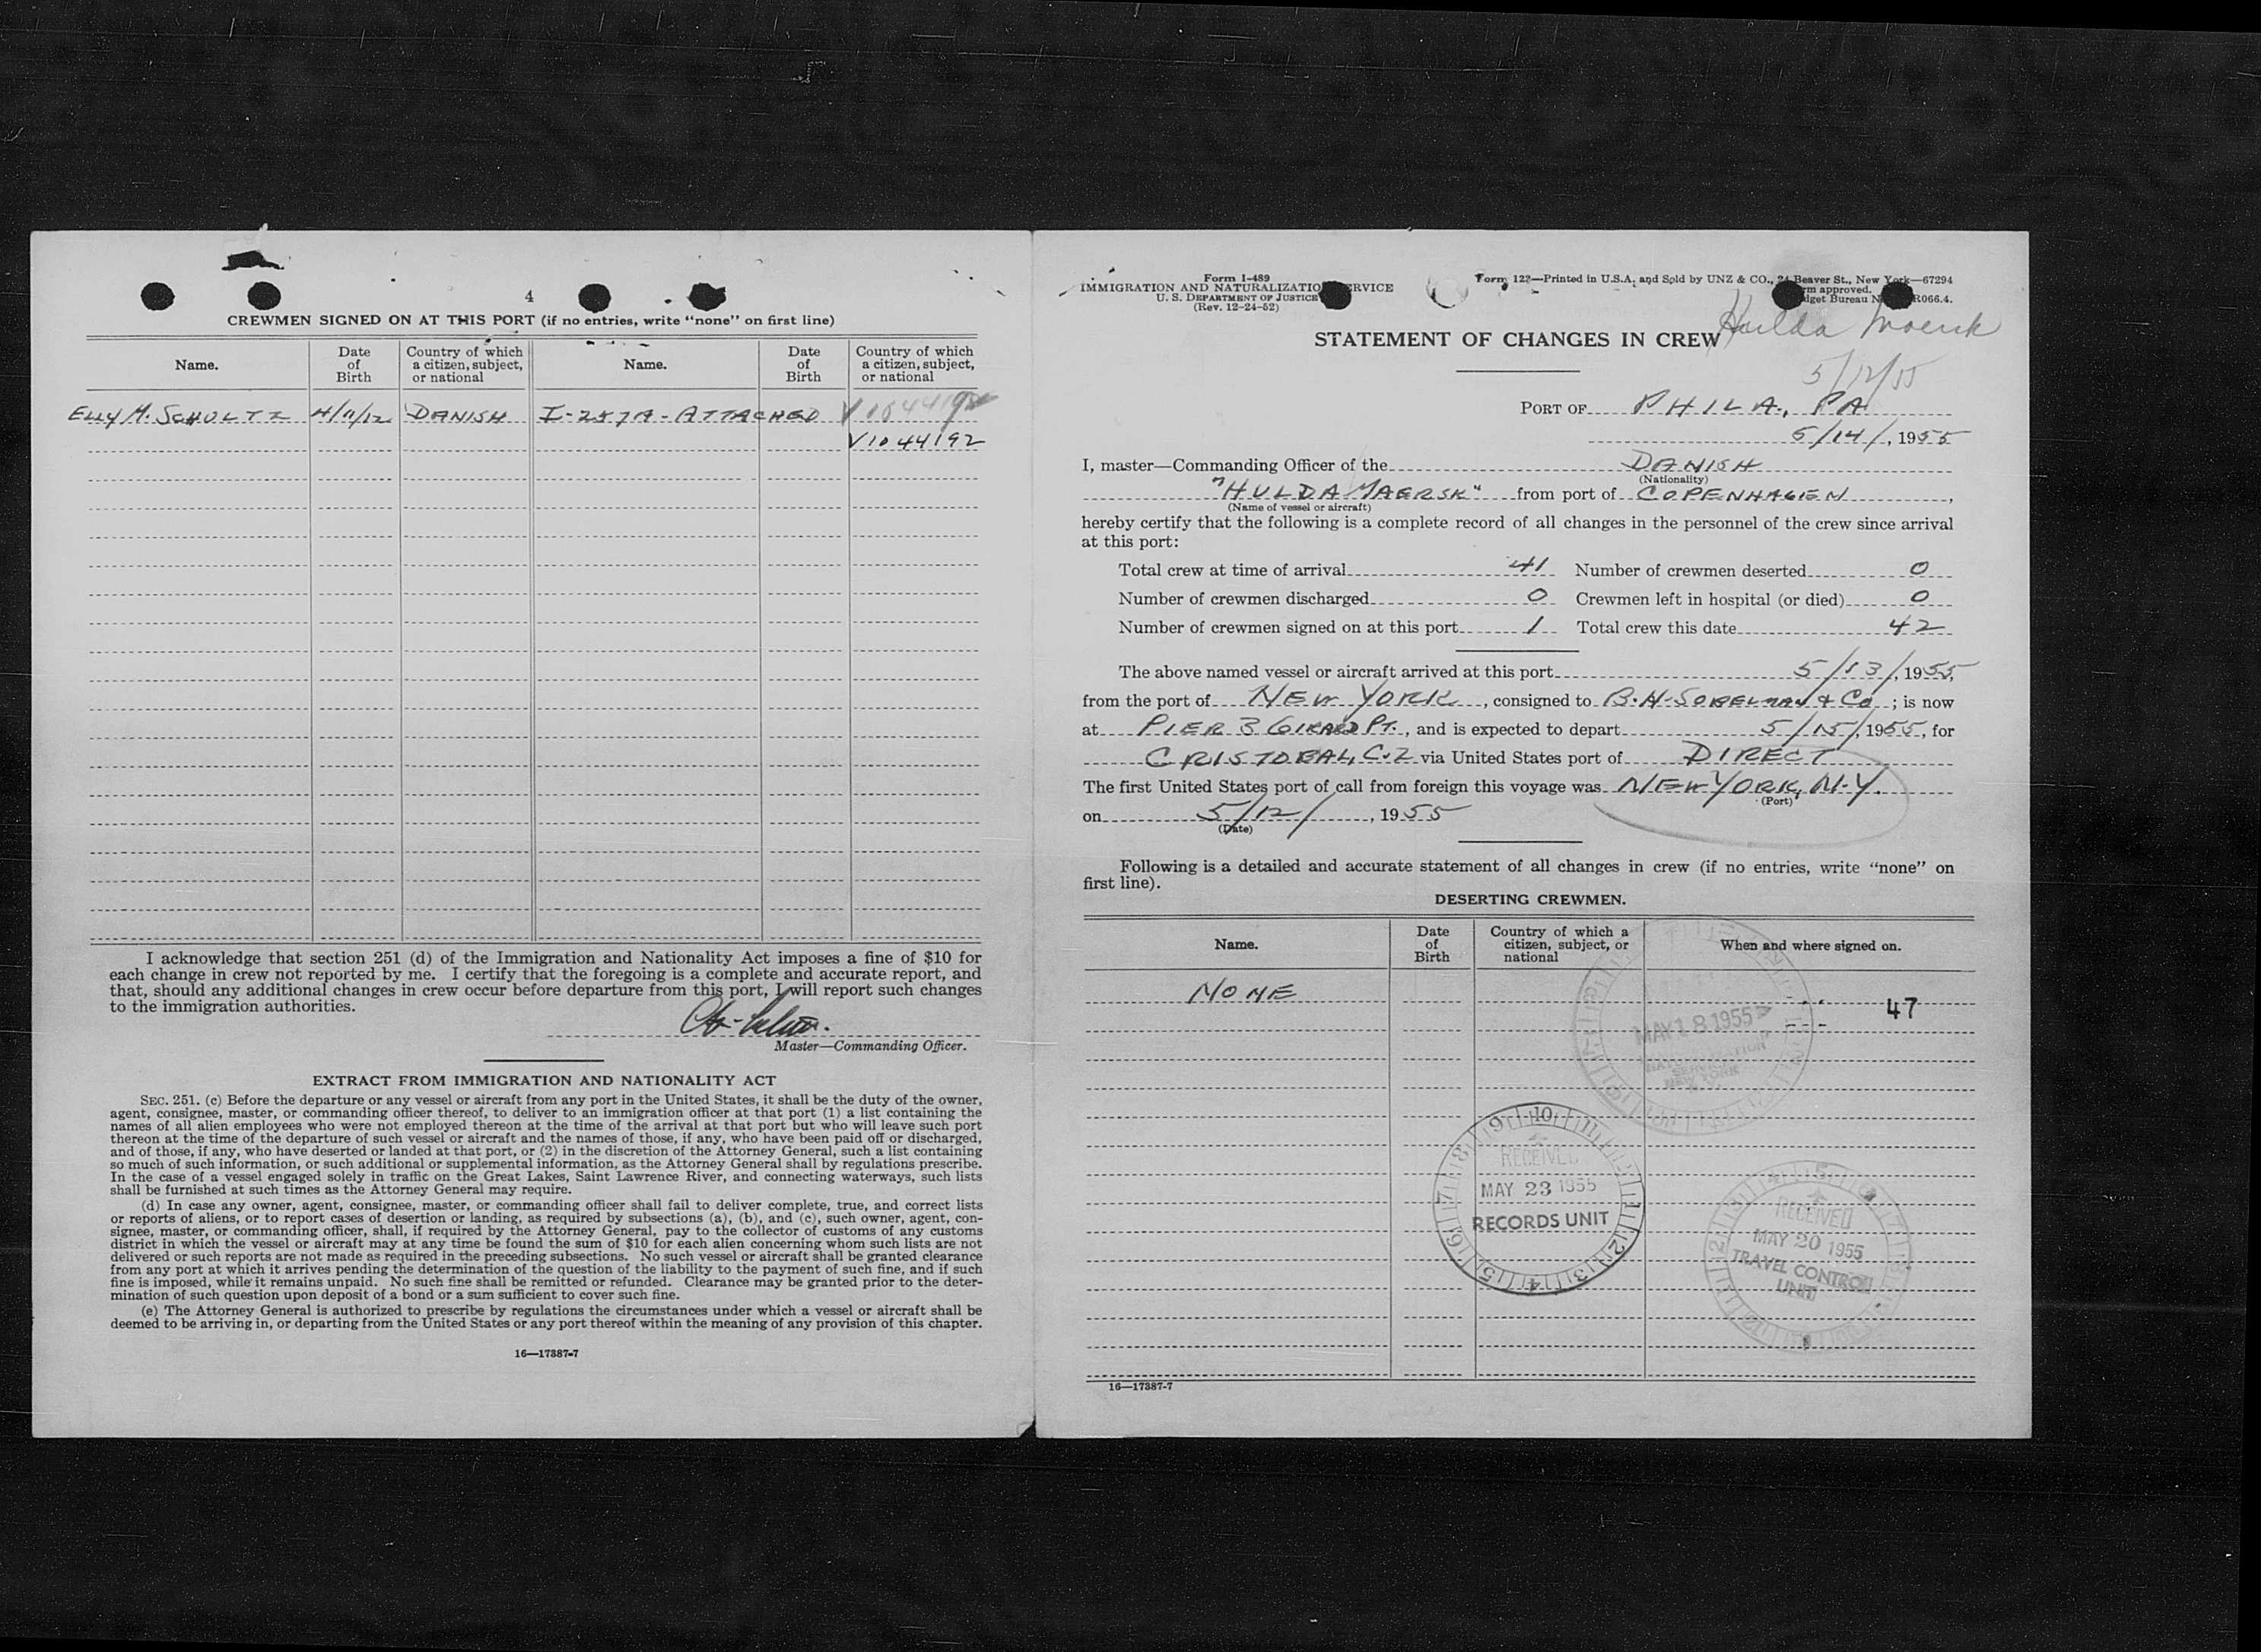 4
CREWMEN SIGNED ON AT THIS PORT (if no entries, write "none" on first line)
Name. Date of Birth Country of which a citizen, subject, or national Name. Date of Birth Country of which a citizen, subject, or national
ELLY M. SCHULTZ 4/11/12 DANISH I-257A-ATTACHED V1044192
V1044192
I acknowledge that section 251 (d) of the Immigration and Nationality Act imposes a fine of $10 for
each change in crew not reported by me. I certify that the foregoing is a complete and accurate report, and
that, should any additional changes in crew occur before departure from this port, I will report such changes
to the immigration authorities.
Master—Commanding Officer.
EXTRACT FROM IMMIGRATION AND NATIONALITY ACT
SEC. 251. (c) Before the departure or any vessel or aircraft from any port in the United States, it shall be the duty of the owner,
agent, consignee, master, or commanding officer thereof, to deliver to an immigration officer at that port (1) a list containing the
names of all alien employees who were not employed thereon at the time of the arrival at that port but who will leave such port
thereon at the time of the departure of such vessel or aircraft and the names of those, if any, who have been paid off or discharged,
and of those, if any, who have deserted or landed at that port, or (2) in the discretion of the Attorney General, such a list containing
so much of such information, or such additional or supplemental information, as the Attorney General shall by regulations prescribe.
In the case of a vessel engaged solely in traffic on the Great Lakes, Saint Lawrence River, and connecting waterways, such lists
shall be furnished at such times as the Attorney General may require.
(d) In case any owner, agent, consignee, master, or commanding officer shall fail to deliver complete, true, and correct lists
or reports of aliens, or to report cases of desertion or landing, as required by subsections (a), (b), and (c), such owner, agent, con-
signee, master, or commanding officer, shall, if required by the Attorney General, pay to the collector of customs of any customs
district in which the vessel or aircraft may at any time be found the sum of $10 for each alien concerning whom such lists are not
delivered or such reports are not made as required in the preceding subsections. No such vessel or aircraft shall be granted clearance
from any port at which it arrives pending the determination of the question of the liability to the payment of such fine, and if such
fine is imposed, while it remains unpaid. No such fine shall be remitted or refunded. Clearance may be granted prior to the deter-
mination of such question upon deposit of a bond or a sum sufficient to cover such fine.
(e) The Attorney General is authorized to prescribe by regulations the circumstances under which a vessel or aircraft shall be
deemed to be arriving in, or departing from the United States or any port thereof within the meaning of any provision of this chapter.
16—17387-7
Form I-489
IMMIGRATION AND NATURALIZATIO RVICE
U. S. DEPARTMENT OF JUSTICE
(Rev. 12-24-52)
Form 122—Printed in U.S.A. and Sold by UNZ & CO., 24 Beaver St., New York—67294
rm approved.
dget Bureau N R066.4.
Hulda Moersk
STATEMENT OF CHANGES IN CREW
5/12/55
PORT OF PHILA., PA
5/14/, 1955
I, master—Commanding Officer of the DANISH
(Nationality)
"HULDA MAERSK" from port of COPENHAGEN,
(Name of vessel or aircraft)
hereby certify that the following is a complete record of all changes in the personnel of the crew since arrival
at this port:
Total crew at time of arrival 41 Number of crewmen deserted 0
Number of crewmen discharged 0 Crewmen left in hospital (or died) 0
Number of crewmen signed on at this port 1 Total crew this date 42
The above named vessel or aircraft arrived at this port 5/13/, 1955,
from the port of NEW YORK, consigned to B.H. SOBELMAN & Co; is now
at PIER 3 GIRARD PT., and is expected to depart 5/15/, 1955, for
CRISTOBAL, C.Z via United States port of DIRECT
The first United States port of call from foreign this voyage was NEW YORK, N.Y.
(Port)
on 5/12/, 1955
(Date)
Following is a detailed and accurate statement of all changes in crew (if no entries, write "none" on
first line).
DESERTING CREWMEN.
Name. Date of Birth Country of which a citizen, subject, or national When and where signed on.
NONE
47
MAY 18 1955
NEW YORK
RECEIVED
MAY 23 1955
RECORDS UNIT
RECEIVED
MAY 20 1955
TRAVEL CONTROL
UNIT
16—17387-7